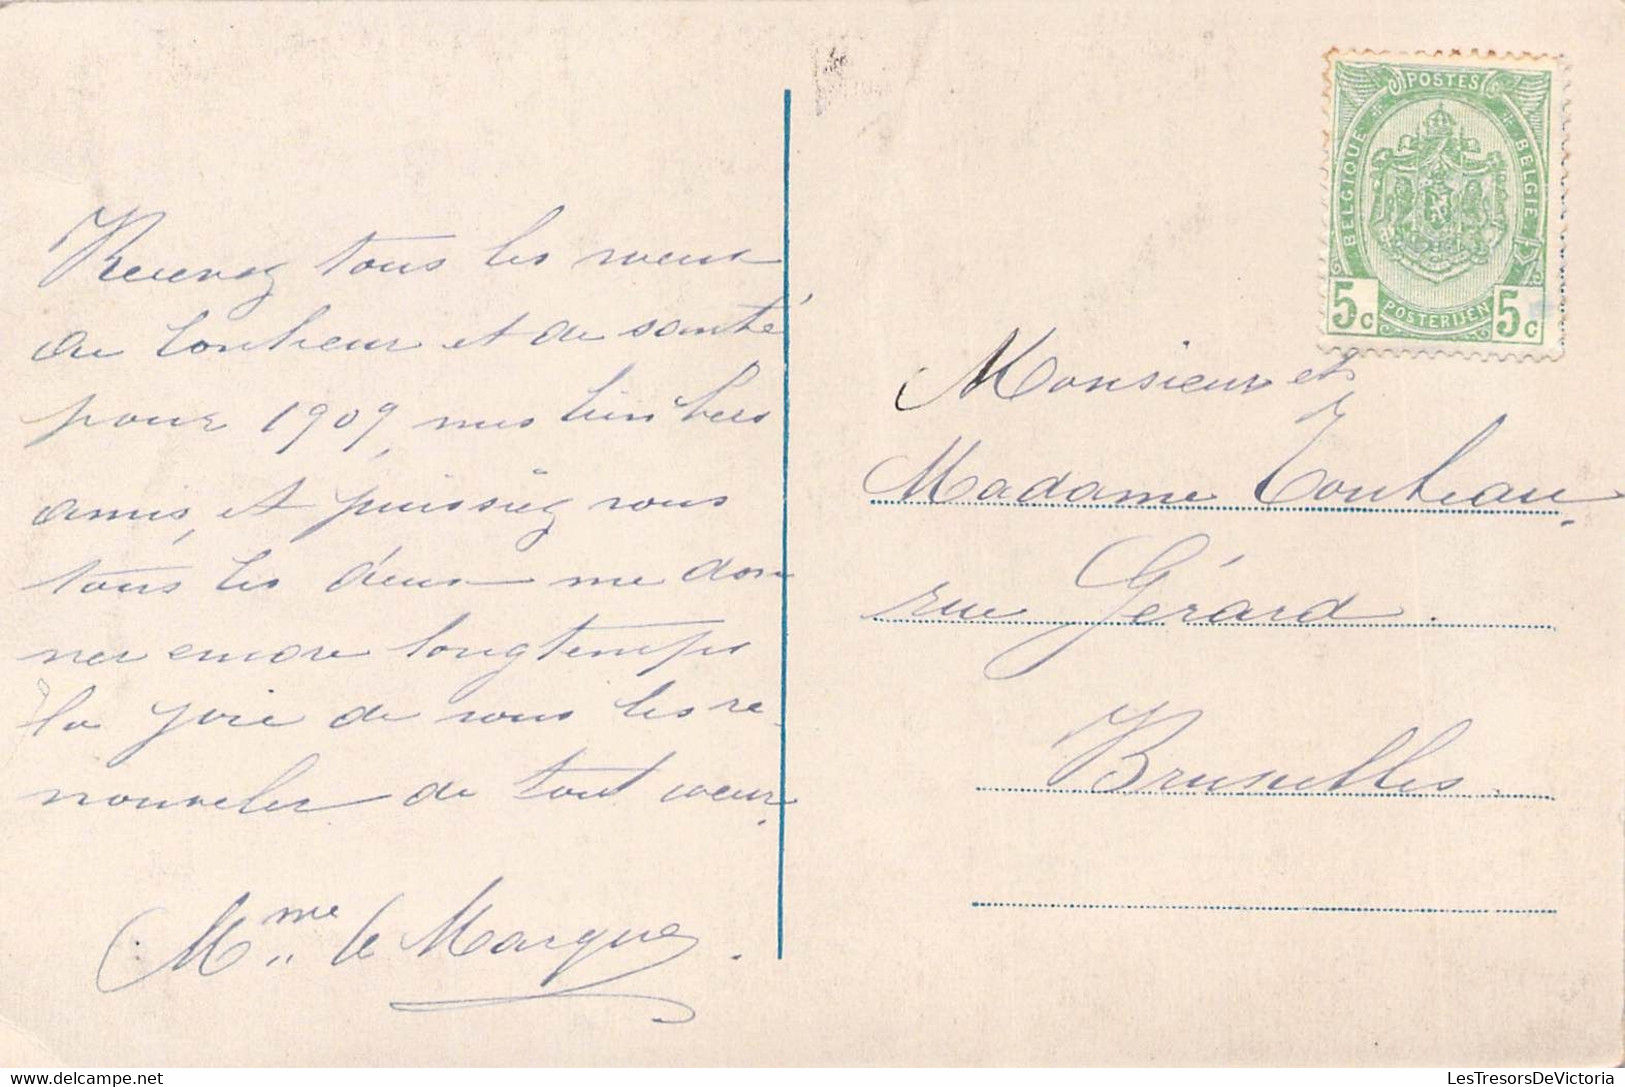 Recevez tous les voeux
de bonheur et de santé
pour 1909, mes bien chers
amis, et puissiez vous
tous les deux me don
ner encore longtemps
la joie de vous les re-
nouveler de tout coeur.
Mme le Marque
POSTES
BELGIQUE
BELGIË
5c
POSTERIJEN
5c
Monsieur et
Madame
rue Gérard.
Bruxelles.
delcampe.net
LesTresorsDeVictoria